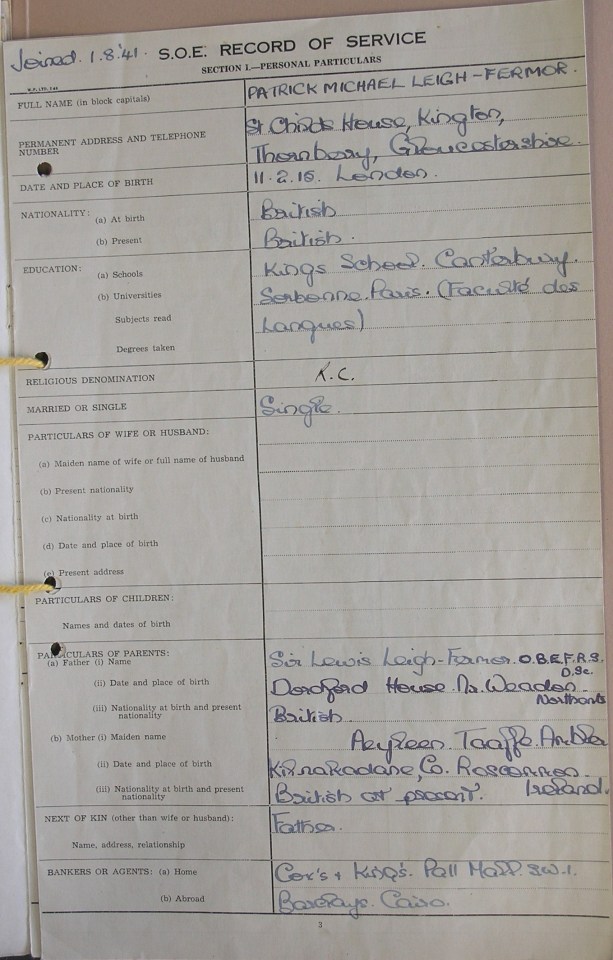 Joined. 1.8.'41. S.O.E. RECORD OF SERVICE
SECTION I.—PERSONAL PARTICULARS
FULL NAME (in block capitals) PATRICK MICHAEL LEIGH-FERMOR.
PERMANENT ADDRESS AND TELEPHONE NUMBER St. Chads House, Kington,
Thornbury, Gloucestershire.
DATE AND PLACE OF BIRTH 11.2.15. London.
NATIONALITY:
(a) At birth British
(b) Present British.
EDUCATION: (a) Schools Kings School. Canterbury.
(b) Universities Sorbonne. Paris. (Faculté des
Subjects read Langues)
Degrees taken
RELIGIOUS DENOMINATION R.C.
MARRIED OR SINGLE Single.
PARTICULARS OF WIFE OR HUSBAND:
(a) Maiden name of wife or full name of husband
(b) Present nationality
(c) Nationality at birth
(d) Date and place of birth
(e) Present address
PARTICULARS OF CHILDREN:
Names and dates of birth
PARTICULARS OF PARENTS:
(a) Father (i) Name Sir Lewis Leigh-Fermor. O.B.E.F.R.S.
D.Sc.
(ii) Date and place of birth Dordford House. Nr. Weedon
Northants
(iii) Nationality at birth and present nationality British
(b) Mother (i) Maiden name Aeyleen Taaffe. Ambler
(ii) Date and place of birth Co. Roscommon.
Ireland.
(iii) Nationality at birth and present nationality British at present.
NEXT OF KIN (other than wife or husband): Father.
Name, address, relationship
BANKERS OR AGENTS: (a) Home Cox's + King's. Pall Mall. S.W.1.
(b) Abroad Barclays. Cairo.
3